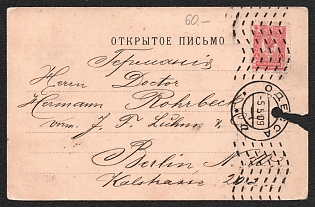 60.—
ОТКРЫТОЕ ПИСЬМО
Германія
Herrn Doctor
Hermann Rohrbeck
vorm. J. F. Luhme &
Berlin N
Kalstrasse 20
ОДЕССА
5.5.09